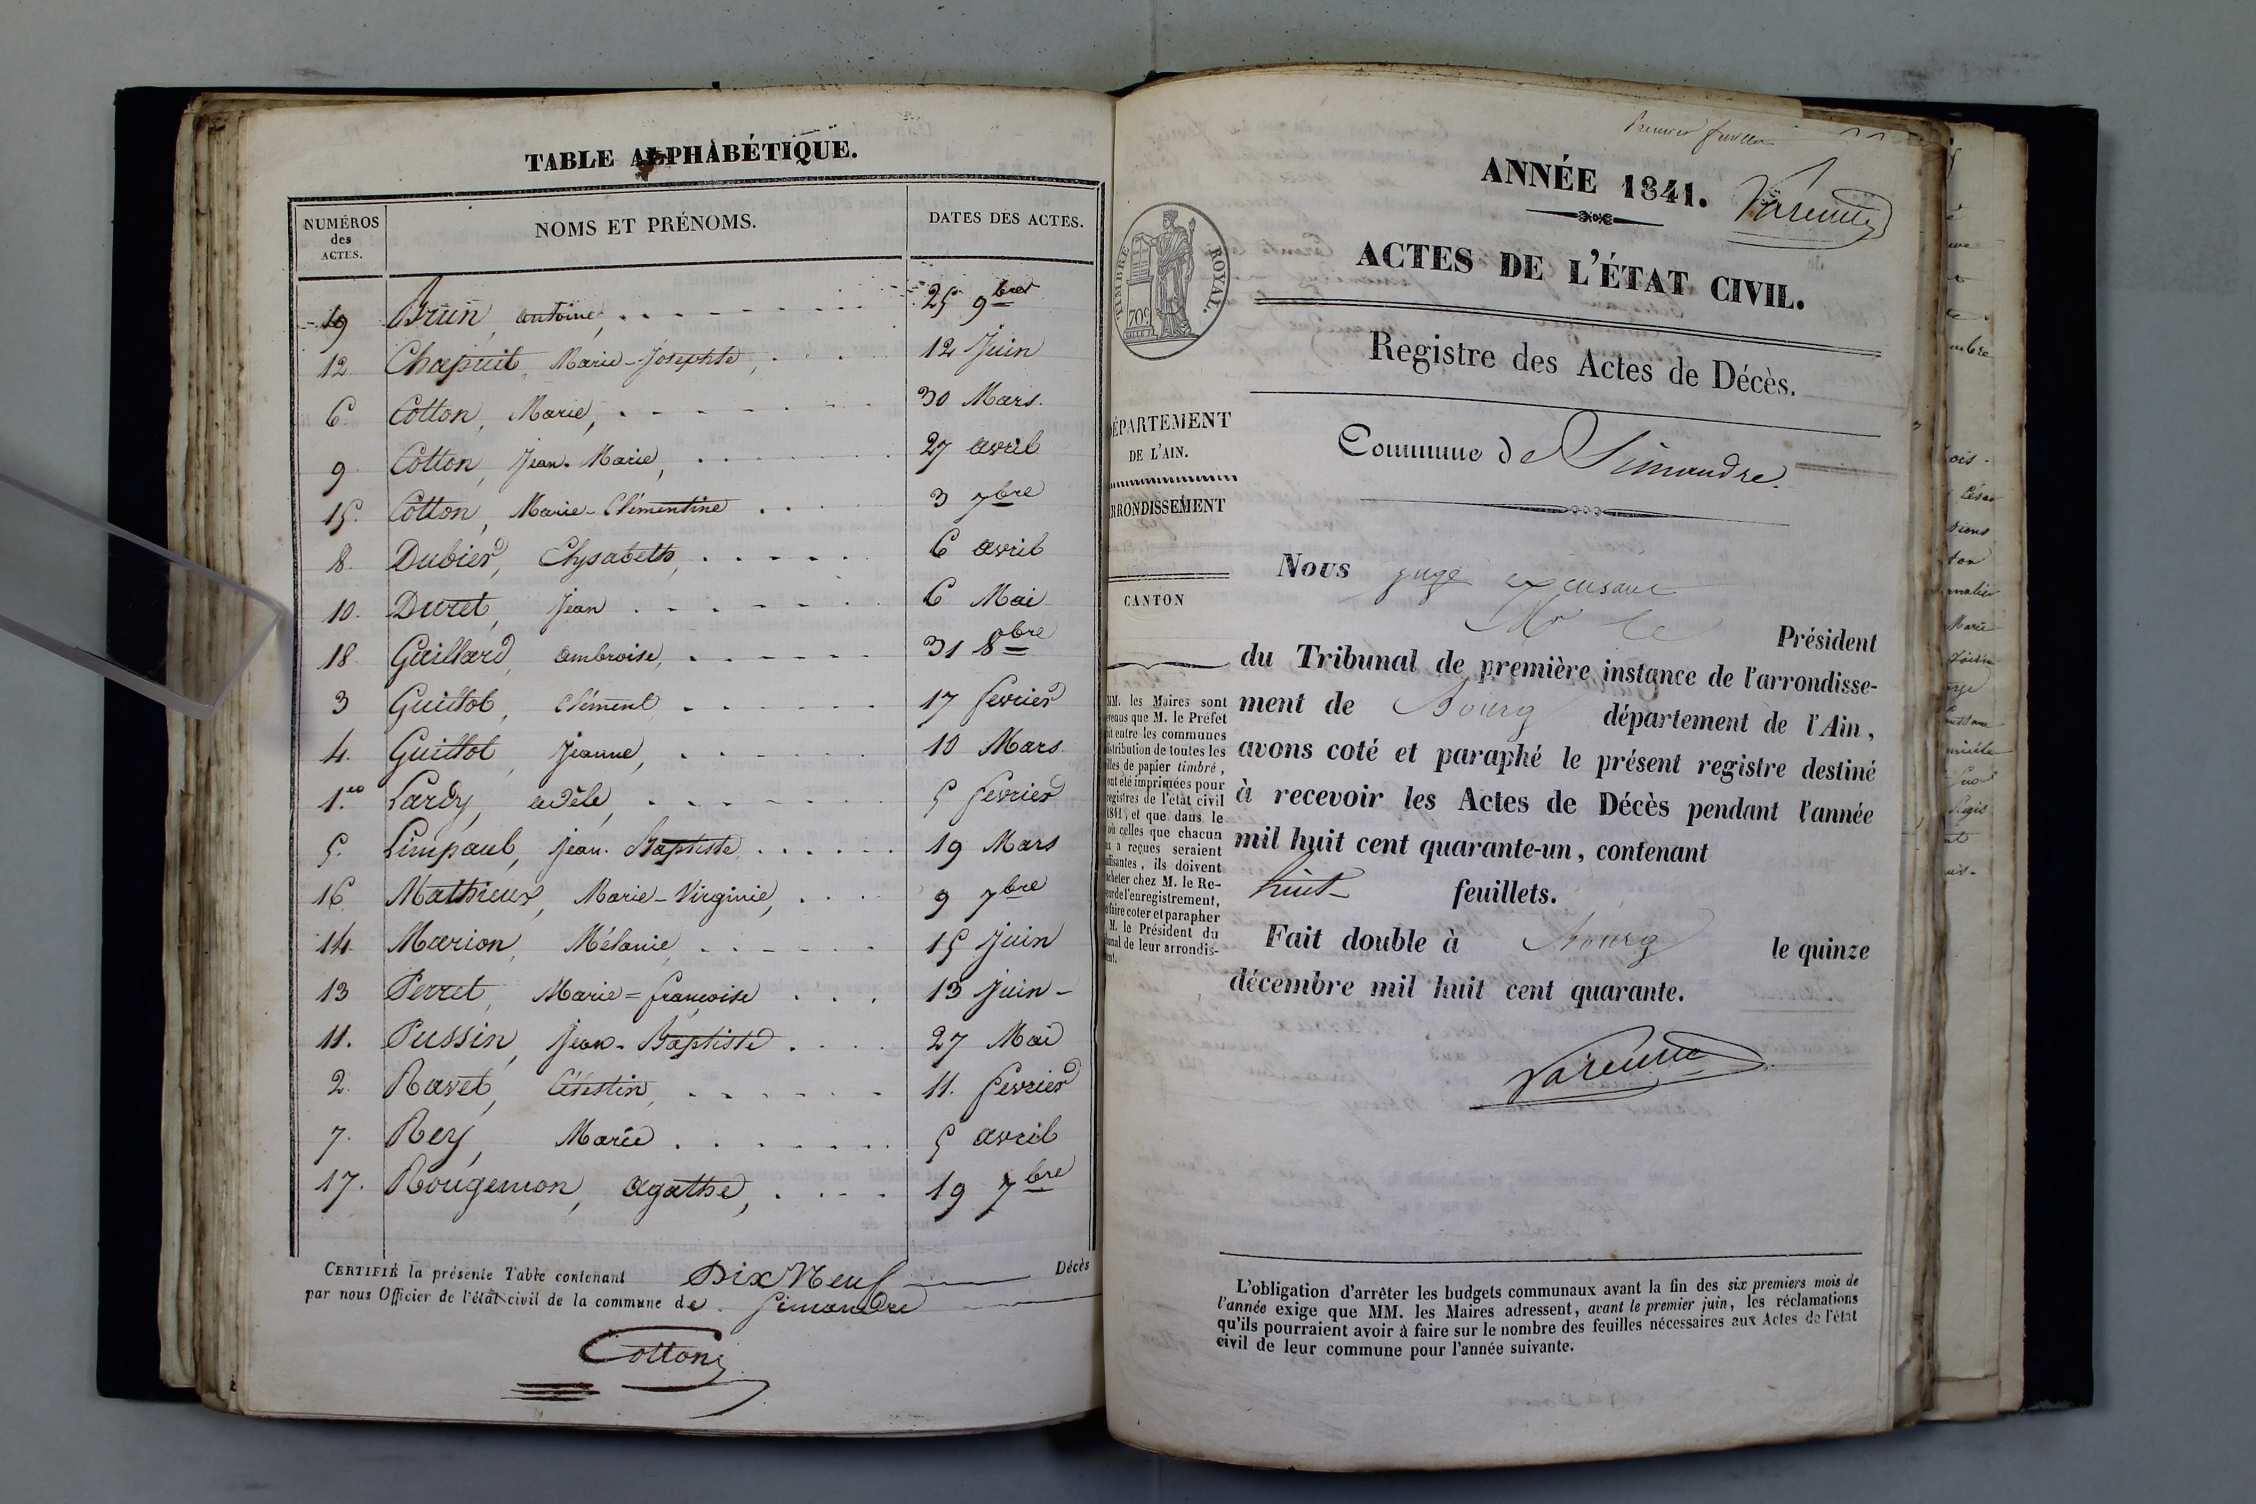 TABLE ALPHABÉTIQUE.
NUMÉROS des ACTES. NOMS ET PRÉNOMS. DATES DES ACTES.
19 Brun, antoine, 25 9bre
12 Chapuit, Marie-Josephte, 12 Juin
6. Cotton, Marie, 30 Mars.
9 Cotton, Jean-Marie, 27 avril
15. Cotton, Marie-Clémentine 3 7bre
8. Dubier, Elysabeth, 6 avril
10. Duret, Jean 6 Mai
18 Guillard, ambroise, 31 8bre
3 Guillot, Clément 17 fevrier
4. Guillot, Jeanne, 10 Mars
1.er Lardy, adèle, 5 fevrier
5. Limpaul, Jean-Baptiste 19 Mars
16 Mathieux, Marie-Virginie, 9 7bre
14 Marion, Mélanie, 15 Juin
13 Perret, Marie=françoise 13 Juin-
11. Pussin, Jean-Baptiste 27 Mai
2. Ravet, Célestin, 11. fevrier
7. Rey, Marie 5 avril
17. Rougemon, agathe, 19 7bre
CERTIFIÉ la présente Table contenant Dix Neuf Décès
par nous Officier de l'état civil de la commune de Simandre
Cotton
Premier feuillet
ANNÉE 1841.
Varenne
TIMBRE ROYAL.
70c
ACTES DE L'ÉTAT CIVIL.
Registre des Actes de Décès.
DÉPARTEMENT
DE L'AIN.
ARRONDISSEMENT
CANTON
Commune de Simandre.
Nous juge excusant
Mr le Président
du Tribunal de première instance de l'arrondisse-
ment de Bourg département de l'Ain,
avons coté et paraphé le présent registre destiné
à recevoir les Actes de Décès pendant l'année
mil huit cent quarante-un, contenant
huit feuillets.
Fait double à Bourg le quinze
décembre mil huit cent quarante.
Varenne
MM. les Maires sont
que M. le Préfet
entre les communes
distribution de toutes les
de papier timbré,
ont été imprimées pour
registres de l'état civil
1841, et que dans le
où celles que chacun
a reçues seraient
ils doivent
acheter chez M. le Re-
de l'enregistrement,
faire coter et parapher
M. le Président du
de leur arrondis-
L'obligation d'arrêter les budgets communaux avant la fin des six premiers mois de
l'année exige que MM. les Maires adressent, avant le premier juin, les réclamations
qu'ils pourraient avoir à faire sur le nombre des feuilles nécessaires aux Actes de l'état
civil de leur commune pour l'année suivante.